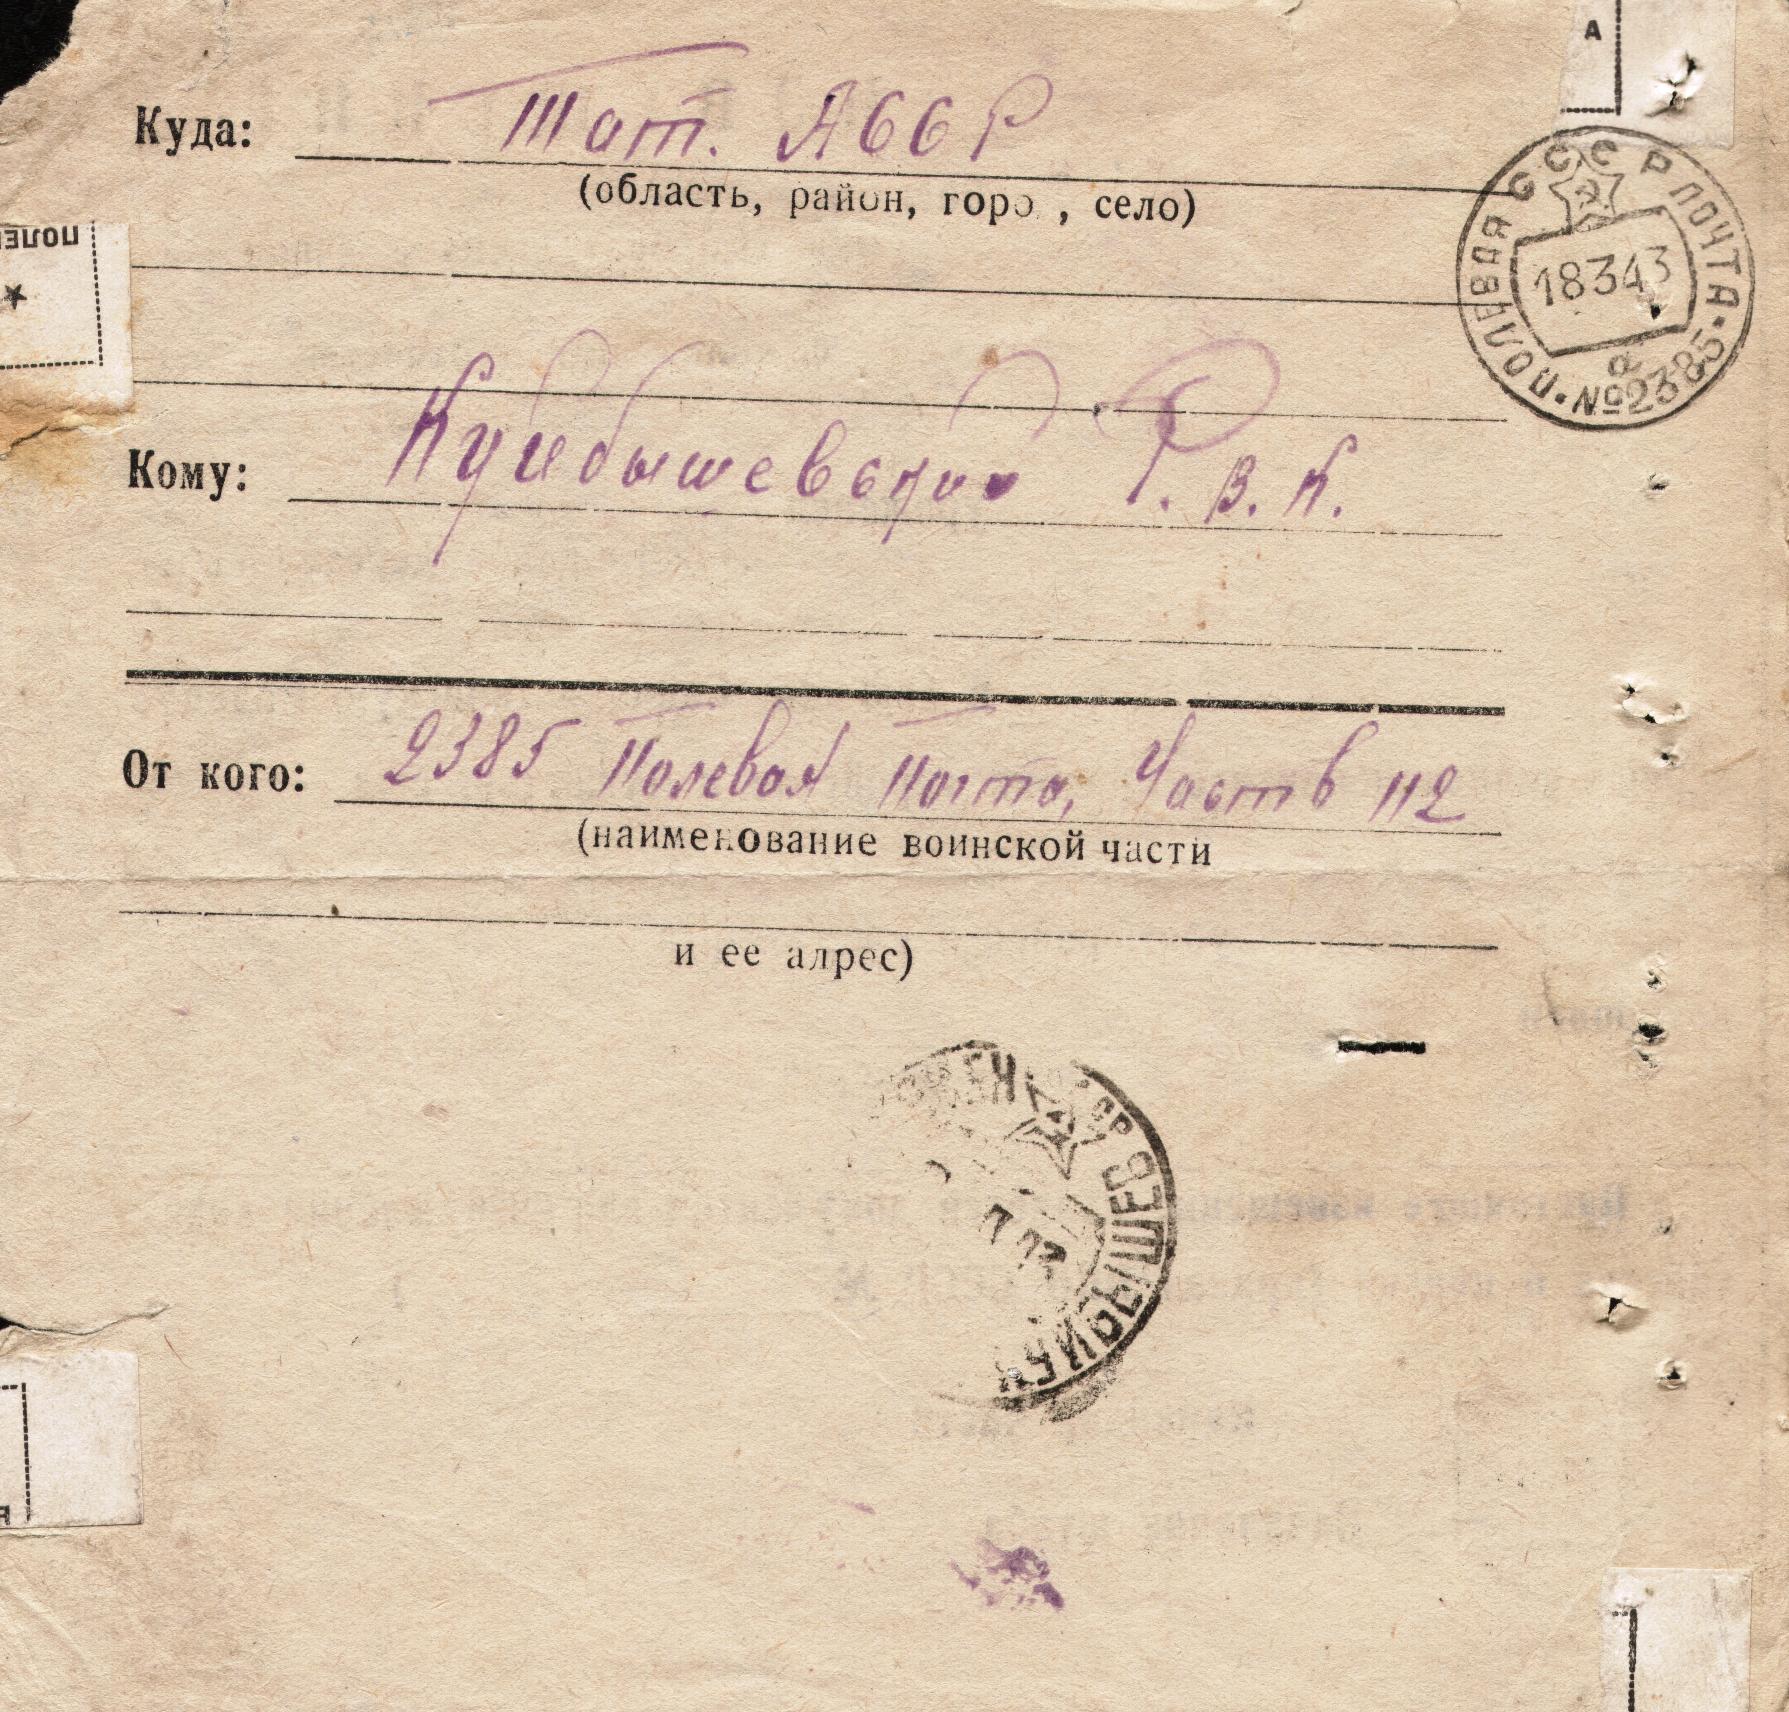 А
Куда: Тат. АССР
(область, район, горо , село)
СССР
ПОЛЕВАЯ ПОЧТА
18 3 43
а
№2385
ПОЛЕ
Кому: Куйбышевский Р.В.К.
От кого: 2385 Полевая Почта, Часть 112
(наименование воинской части
и ее адрес)
КУЙБЫШЕВ
Я